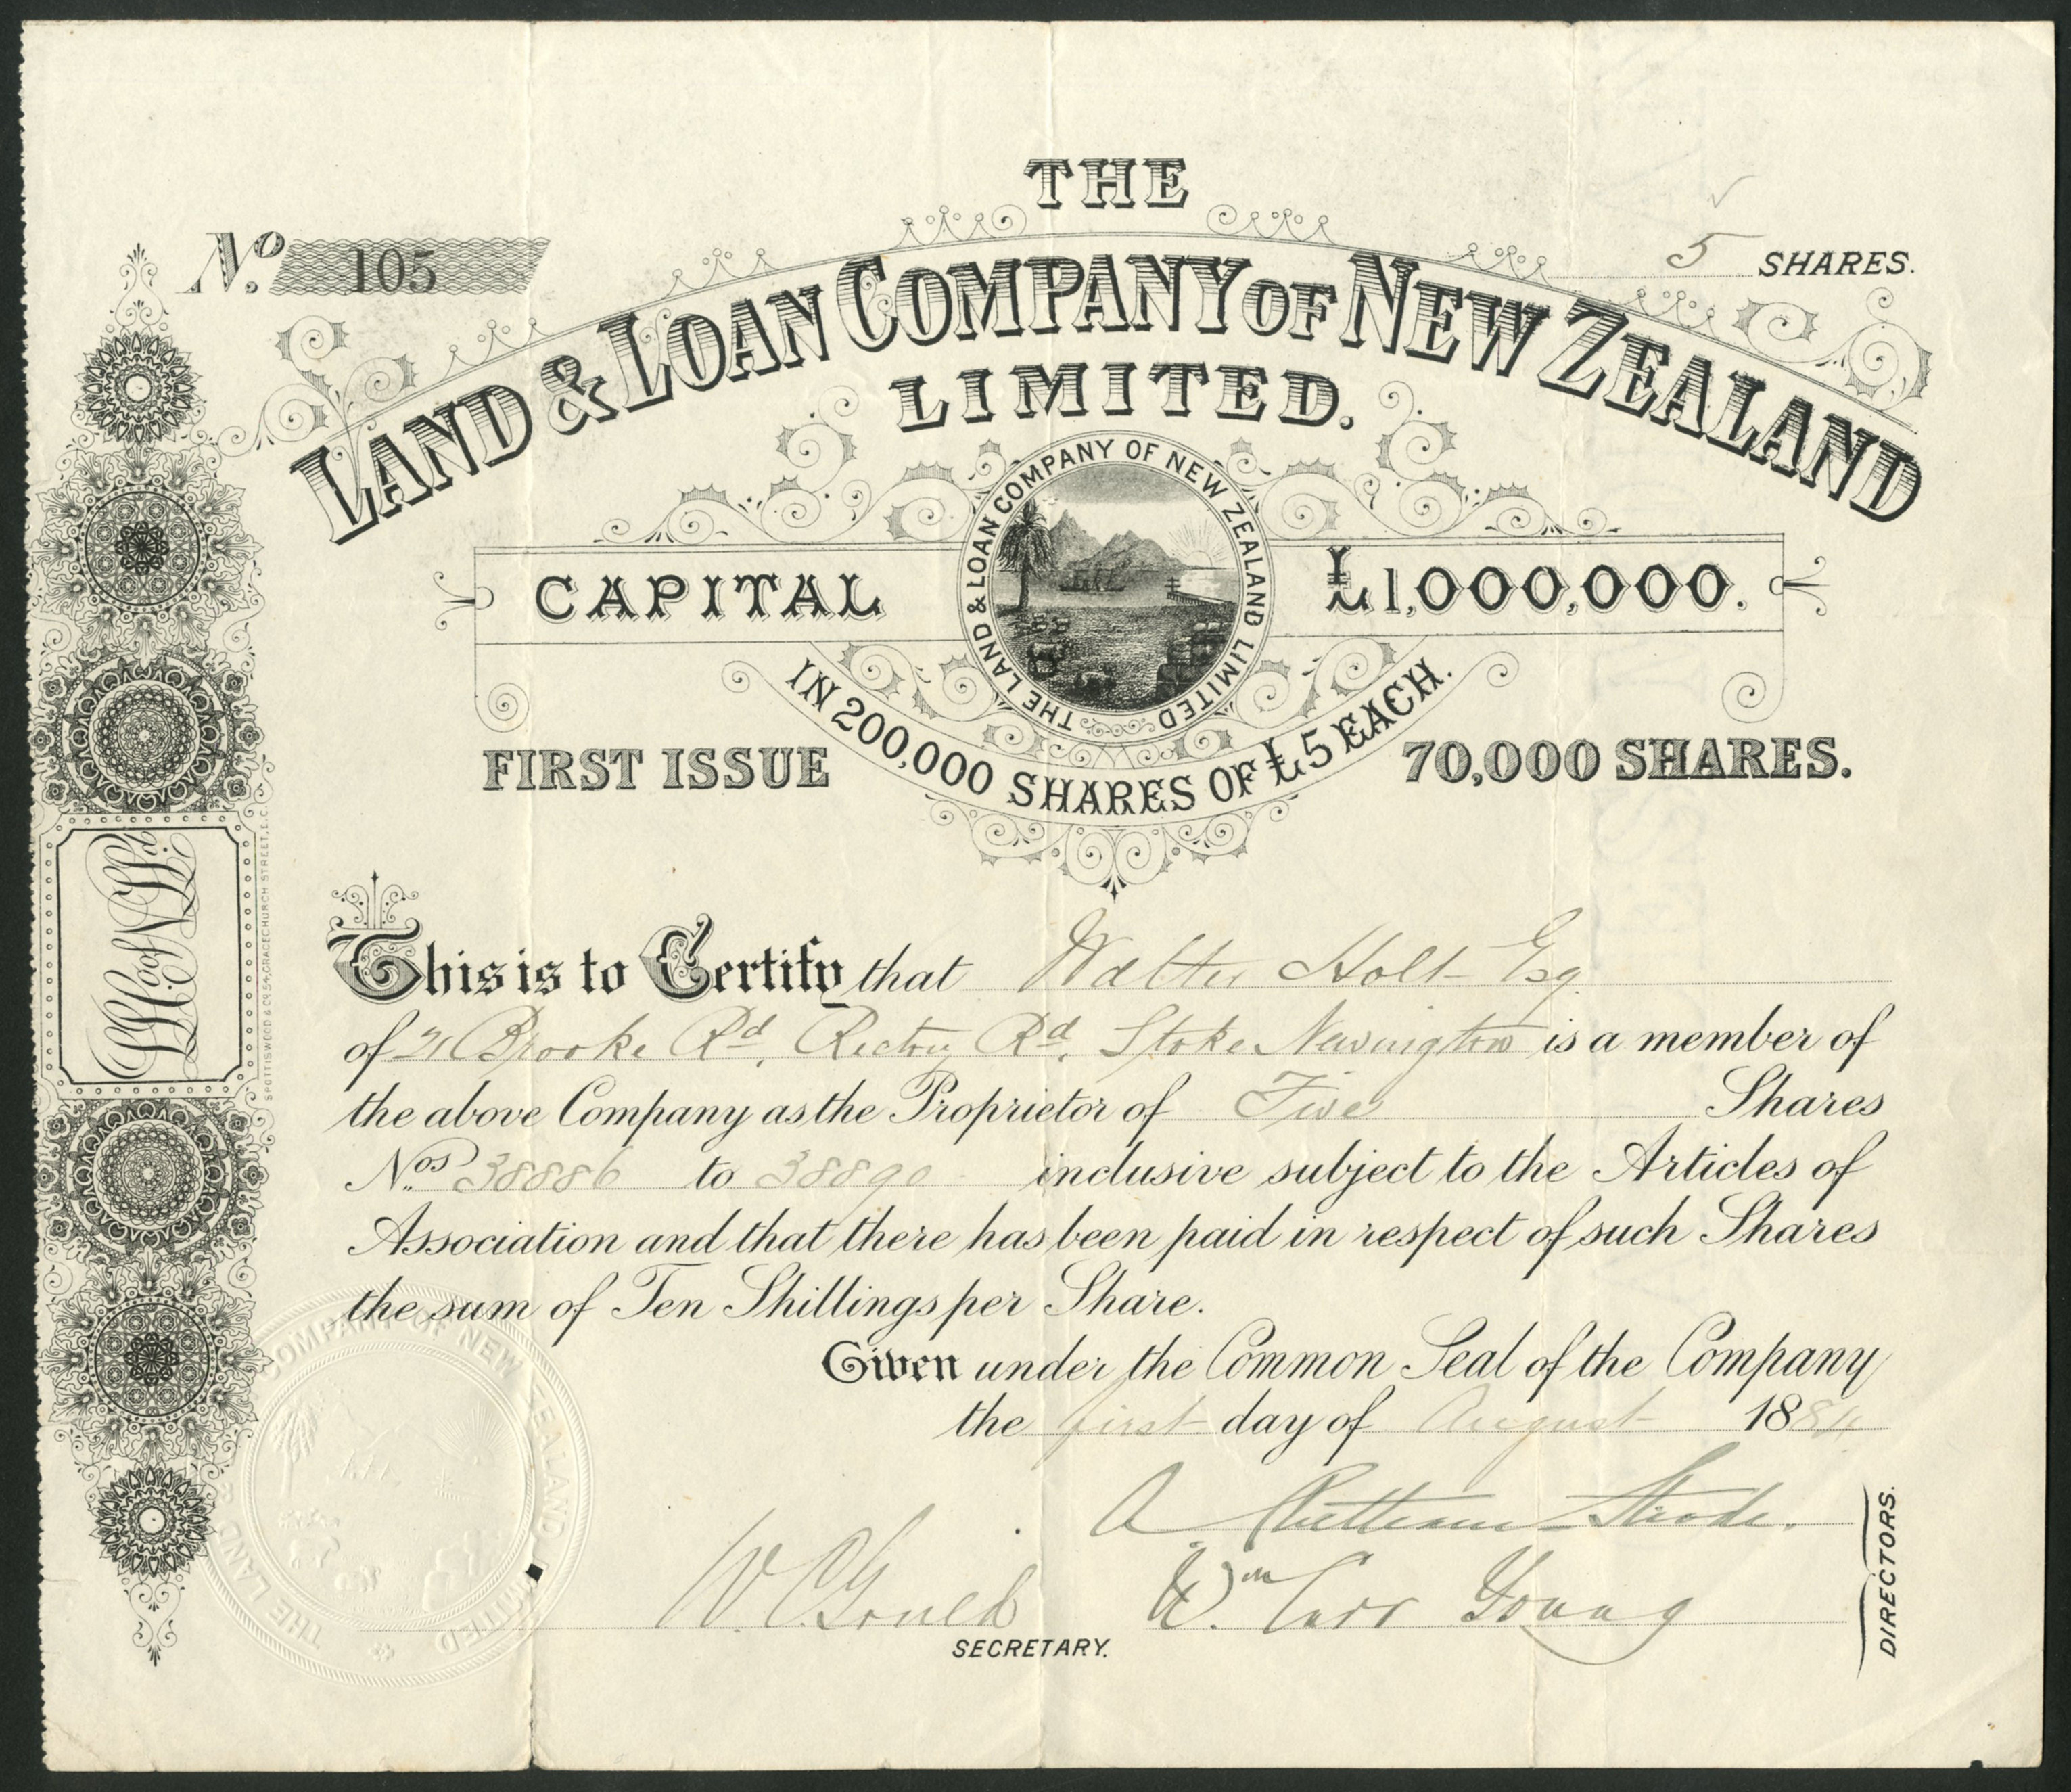 THE
No. 105
5 SHARES.
LAND & LOAN COMPANY OF NEW ZEALAND
LIMITED.
THE LAND & LOAN COMPANY OF NEW ZEALAND LIMITED
CAPITAL £1,000,000.
IN 200,000 SHARES OF £5 EACH.
FIRST ISSUE 70,000 SHARES.
SPOTTISWOODE & Co. 54, GRACECHURCH STREET, E.C.
This is to Certify that Walter Holt Esq
of 21 Brooke Rd, Rectory Rd, Stoke Newington is a member of
the above Company as the Proprietor of Five Shares
Nos 38886 to 38890 inclusive subject to the Articles of
Association and that there has been paid in respect of such Shares
the sum of Ten Shillings per Share.
Given under the Common Seal of the Company
the first day of August 1884
A Chetham-Strode.
W. C. Gould Wm. Carr Young
SECRETARY.
DIRECTORS.
THE LAND & COMPANY OF NEW ZEALAND LIMITED